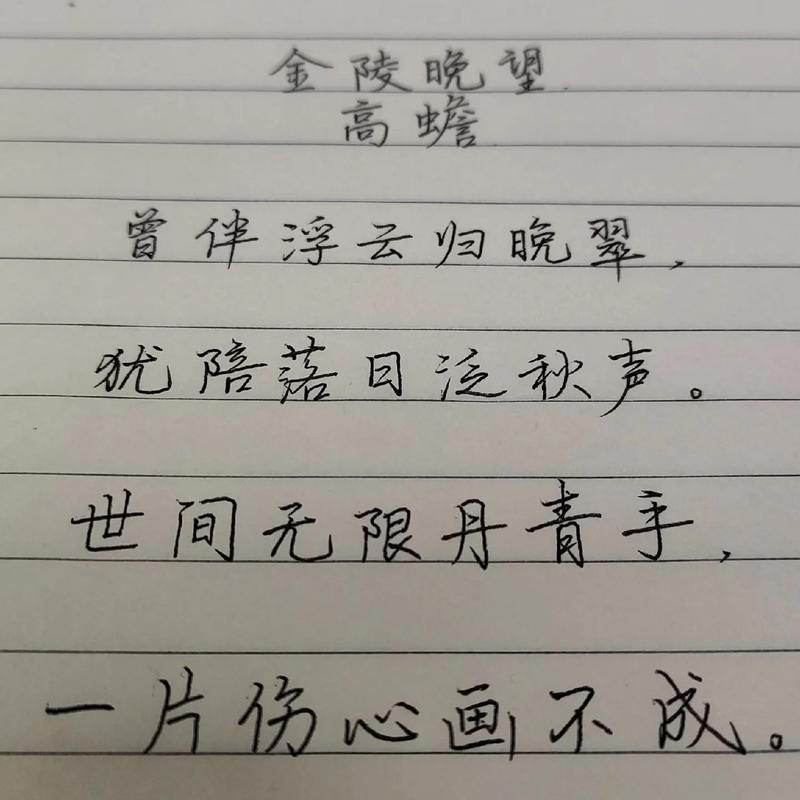 金陵晚望
高蟾
曾伴浮云归晚翠，
犹陪落日泛秋声。
世间无限丹青手，
一片伤心画不成。